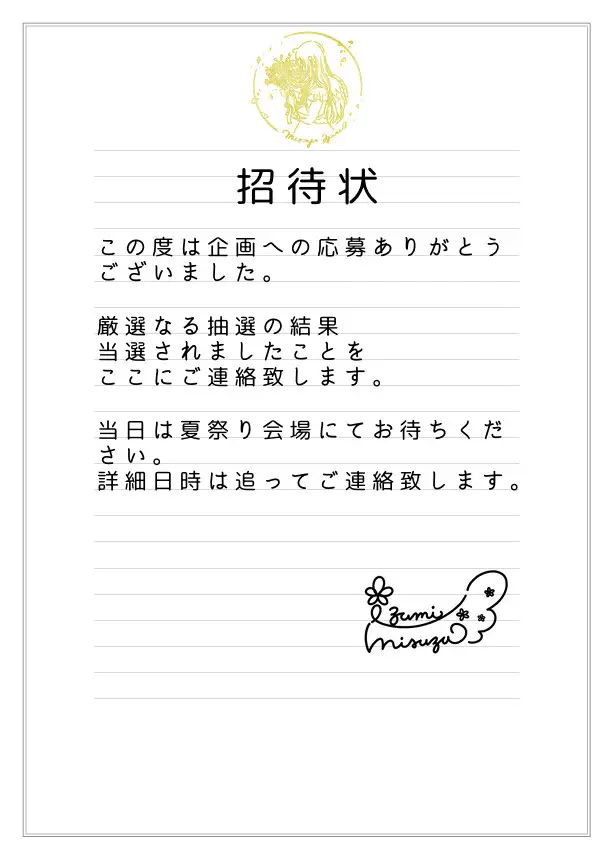 招待状
この度は企画への応募ありがとう
ございました。
厳選なる抽選の結果
当選されましたことを
ここにご連絡致します。
当日は夏祭り会場にてお待ちくだ
さい。
詳細日時は追ってご連絡致します。
Izumi
misuzu